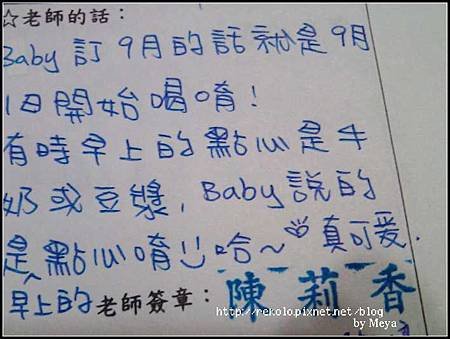 ☆老師的話：
Baby 訂 9月的話就是9月
1日開始喝唷！
有時早上的點心是牛
奶或豆漿，Baby說的
是^點心唷！哈～真可爱.
早上的
老師簽章：陳莉香
http://rekolo.pixnet.net/blog
by Meya